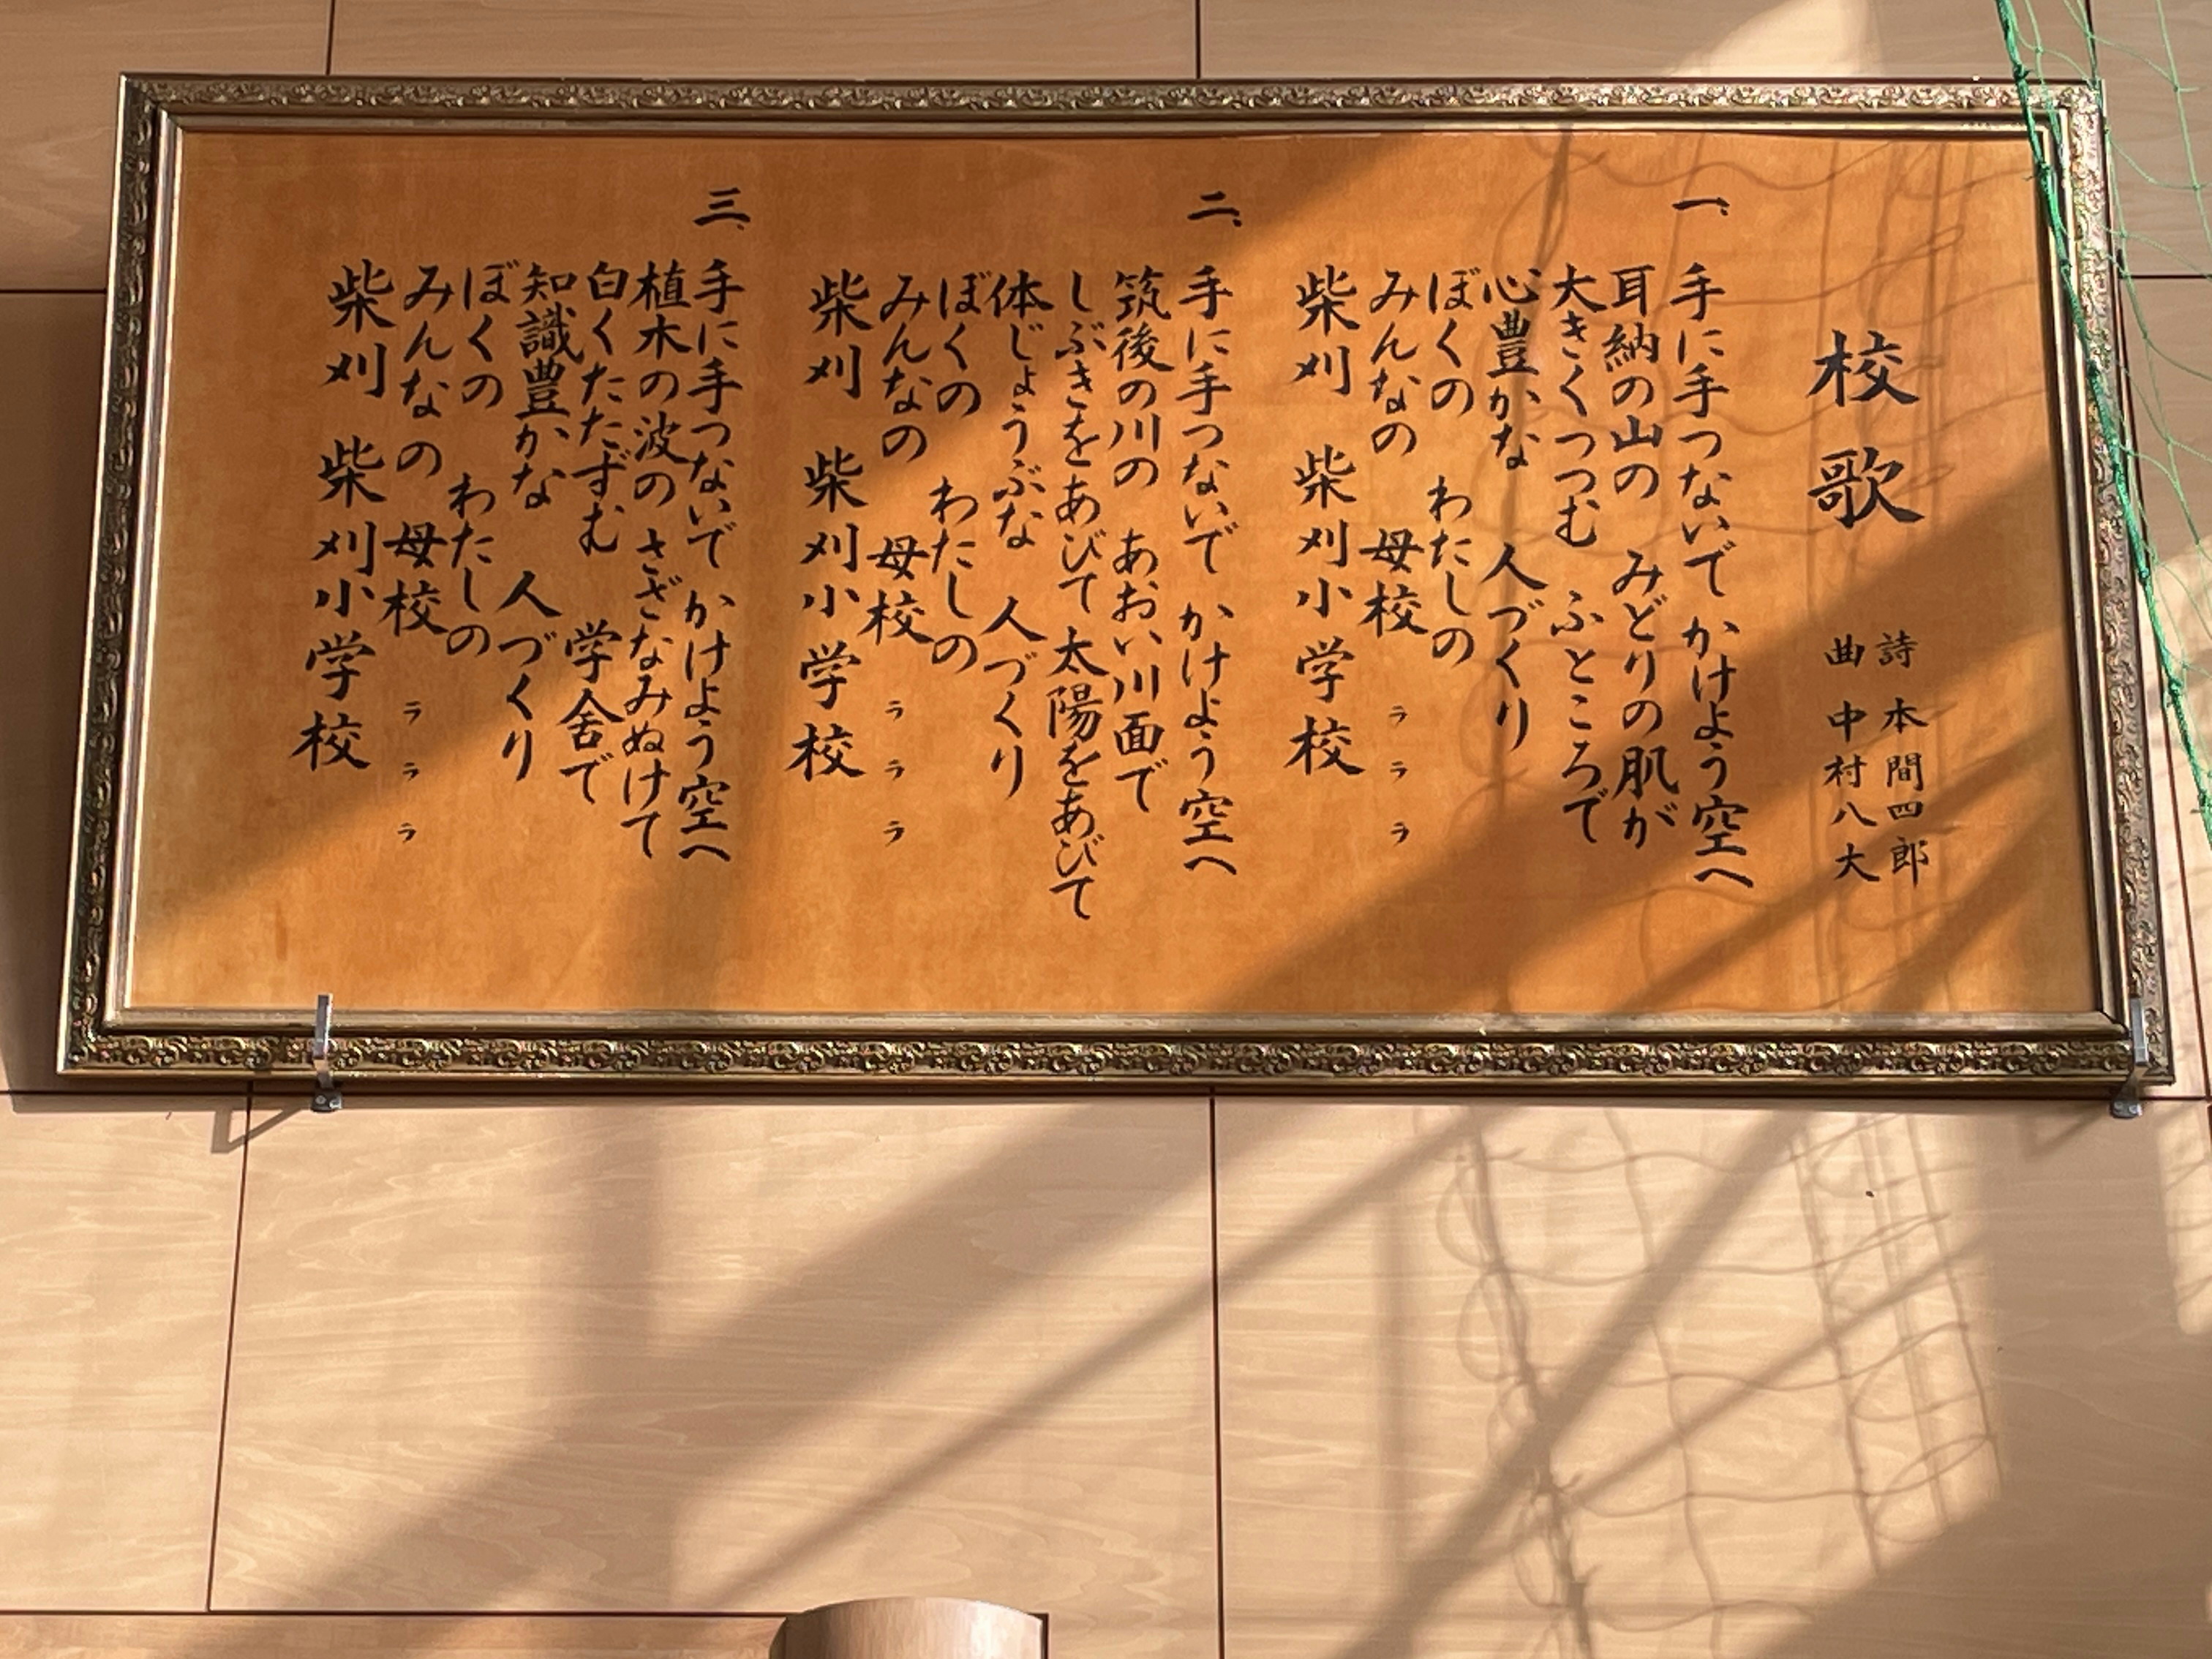 校歌
詩 本間四郎
曲 中村八大
一、手に手つないで かけよう空へ
耳納の山の みどりの肌が
大きくつつむ ふところで
心豊かな 人づくり
ぼくの わたしの
みんなの 母校 ラララ
柴刈 柴刈小学校
二、手に手つないで かけよう空へ
筑後の川の あおい川面で
しぶきをあびて太陽をあびて
体じょうぶな 人づくり
ぼくの わたしの
みんなの 母校 ラララ
柴刈 柴刈小学校
三、手に手つないで かけよう空へ
植木の波の さざなみぬけて
白くたたずむ 学舎で
知識豊かな 人づくり
ぼくの わたしの
みんなの 母校 ラララ
柴刈 柴刈小学校